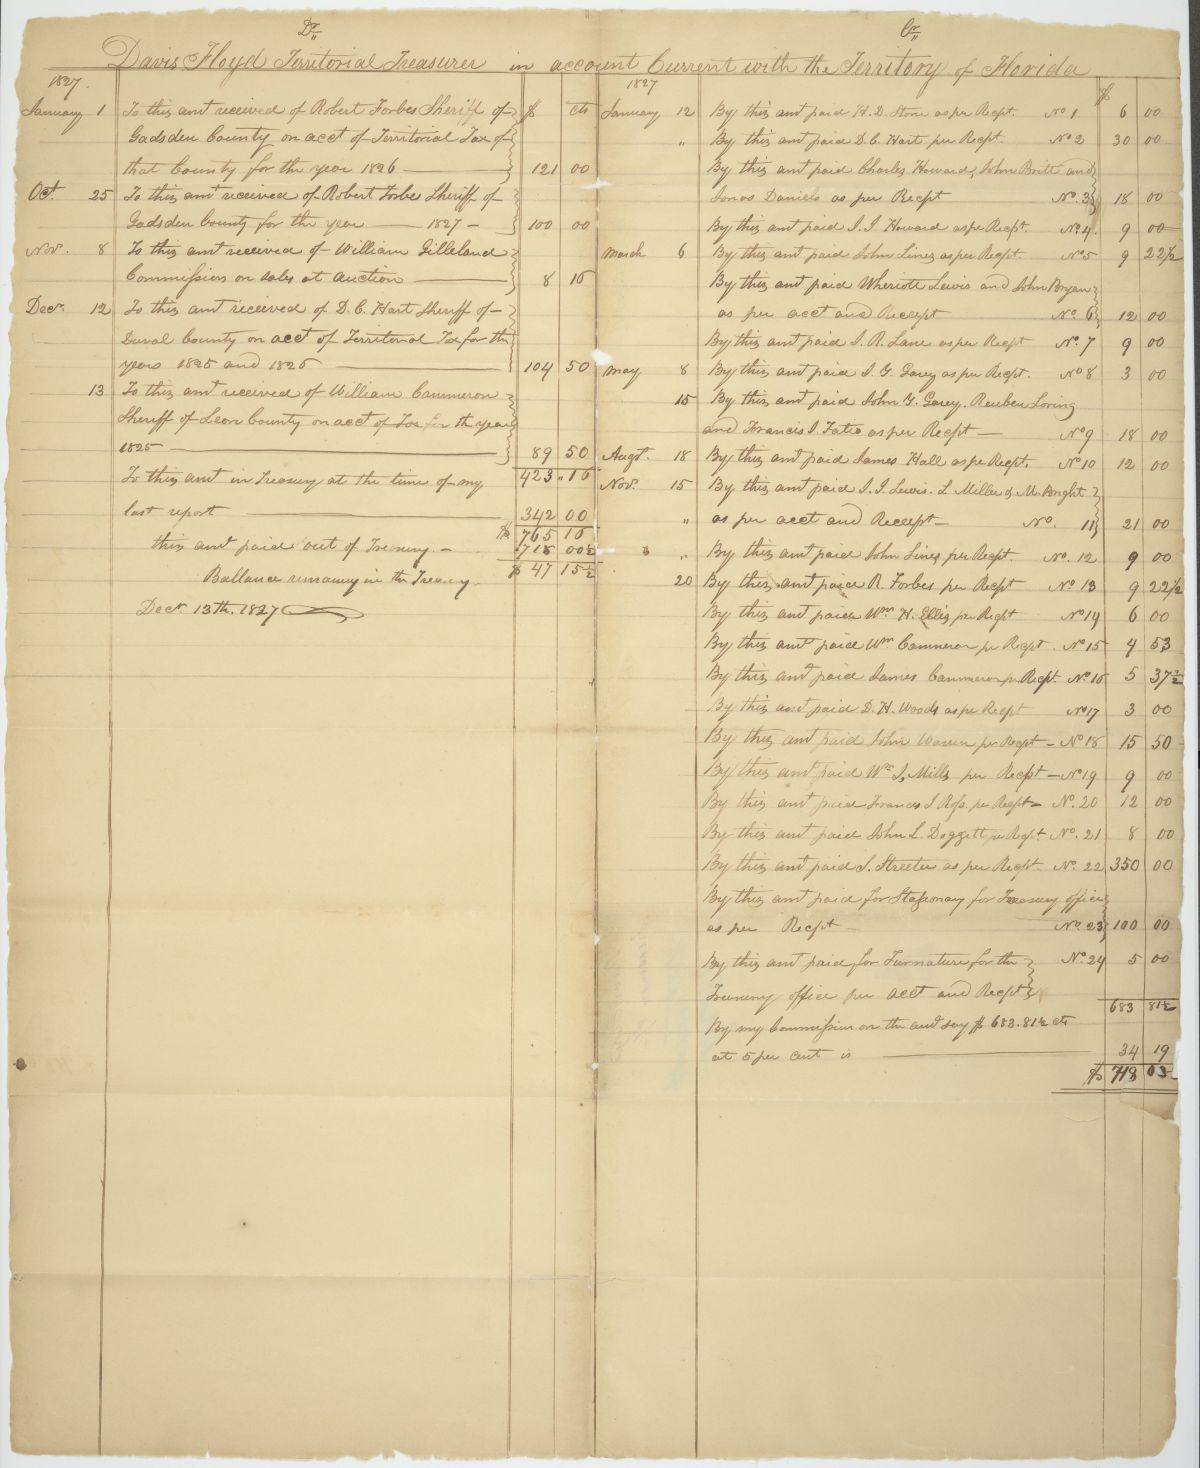 Dr
Cr
Davis Floyd Territorial Treasurer in account Current with the Territory of Florida
1827.
January 1 To this amt received of Robert Forbes Sheriff of $ cts
Gadsden County on acct of Territorial Tax of
that County for the year 1826 121 00
Oct. 25 To this amt received of Robert Forbes Sheriff of
Gadsden County for the year 1827 100 00
Nov. 8 To this amt received of William Gilleland
Commission on sales at auction 8 16
Decr. 12 To this amt received of D. C. Hart Sheriff of
Duval County on acct of Territorial Tax for the
years 1825 and 1826 104 50
13 To this amt received of William Cammeron
Sheriff of Leon County on acct of Tax for the year
1825 89 50
423.16
To this amt in Treasury at the time of my
last report 342 00
$ 765 16
this amt paid out of Treasury 718 00½
Ballance remaing in the Treasury $ 47 15½
Decr 13th. 1827
1827 $
January 12 By this amt paid H. D. Stone as per Recpt. No 1 6 00
" By this amt paid D. C. Hart per Recpt. No 2 30 00
By this amt paid Charles Howard, John Britt and
Jonas Daniels as per Recpt No. 3 18 00
By this amt paid J. J. Howard as per Recpt. No 4. 9 00
March 6 By this amt paid John Lines as per Recpt No 5 9 22½
By this amt paid Wheriott Lewis and John Bryan
as per acct and Receipt No. 6 12 00
By this amt paid J. R. Lane as per Recpt No. 7 9 00
May 8 By this amt paid J. G. Garey as per Recpt. No 8 3 00
15 By this amt paid John G. Garey. Reuben Loring
and Francis J Fatio as per Recpt No 9 18 00
Augt. 18 By this amt paid James Hall as per Recpt. No 10 12 00
Nov. 15 By this amt paid J. J. Lewis. L. Miller & M. Bright
" as per acct and Receept No. 11 21 00
" By this amt paid John Lines per Recpt. No. 12 9 00
20 By this amt paid R Forbes per Recpt No 13 9 22½
By this amt paid Wm H. Ellis per Recpt No 14 6 00
By this amt paid Wm. Cammeron per Recpt. No 15 4 53
By this amt paid James Cammeron per Recpt. No 16 5 37½
By this amt paid D. H. Woods as per Recpt No 17 3 00
By this amt paid John Warren per Recpt No 18 15 50
By this amt paid Wm J. Mills per Recpt No 19 9 00
By this amt paid Francis J Ross. per Recpt No. 20 12 00
By this amt paid John L. Doggett per Recpt No. 21 8 00
By this amt paid S. Streeter as per Recpt. No. 22 350 00
By this amt paid for Stationary for Treasury office
as per Recpt No. 23 100 00
By this amt paid for Furnature for the No. 24 5 00
Treasury office per acct and Recpt
683 81½
By my Commission on the amt say $ 683.81½ cts
at 5 per cent is 34 19
$ 718 03